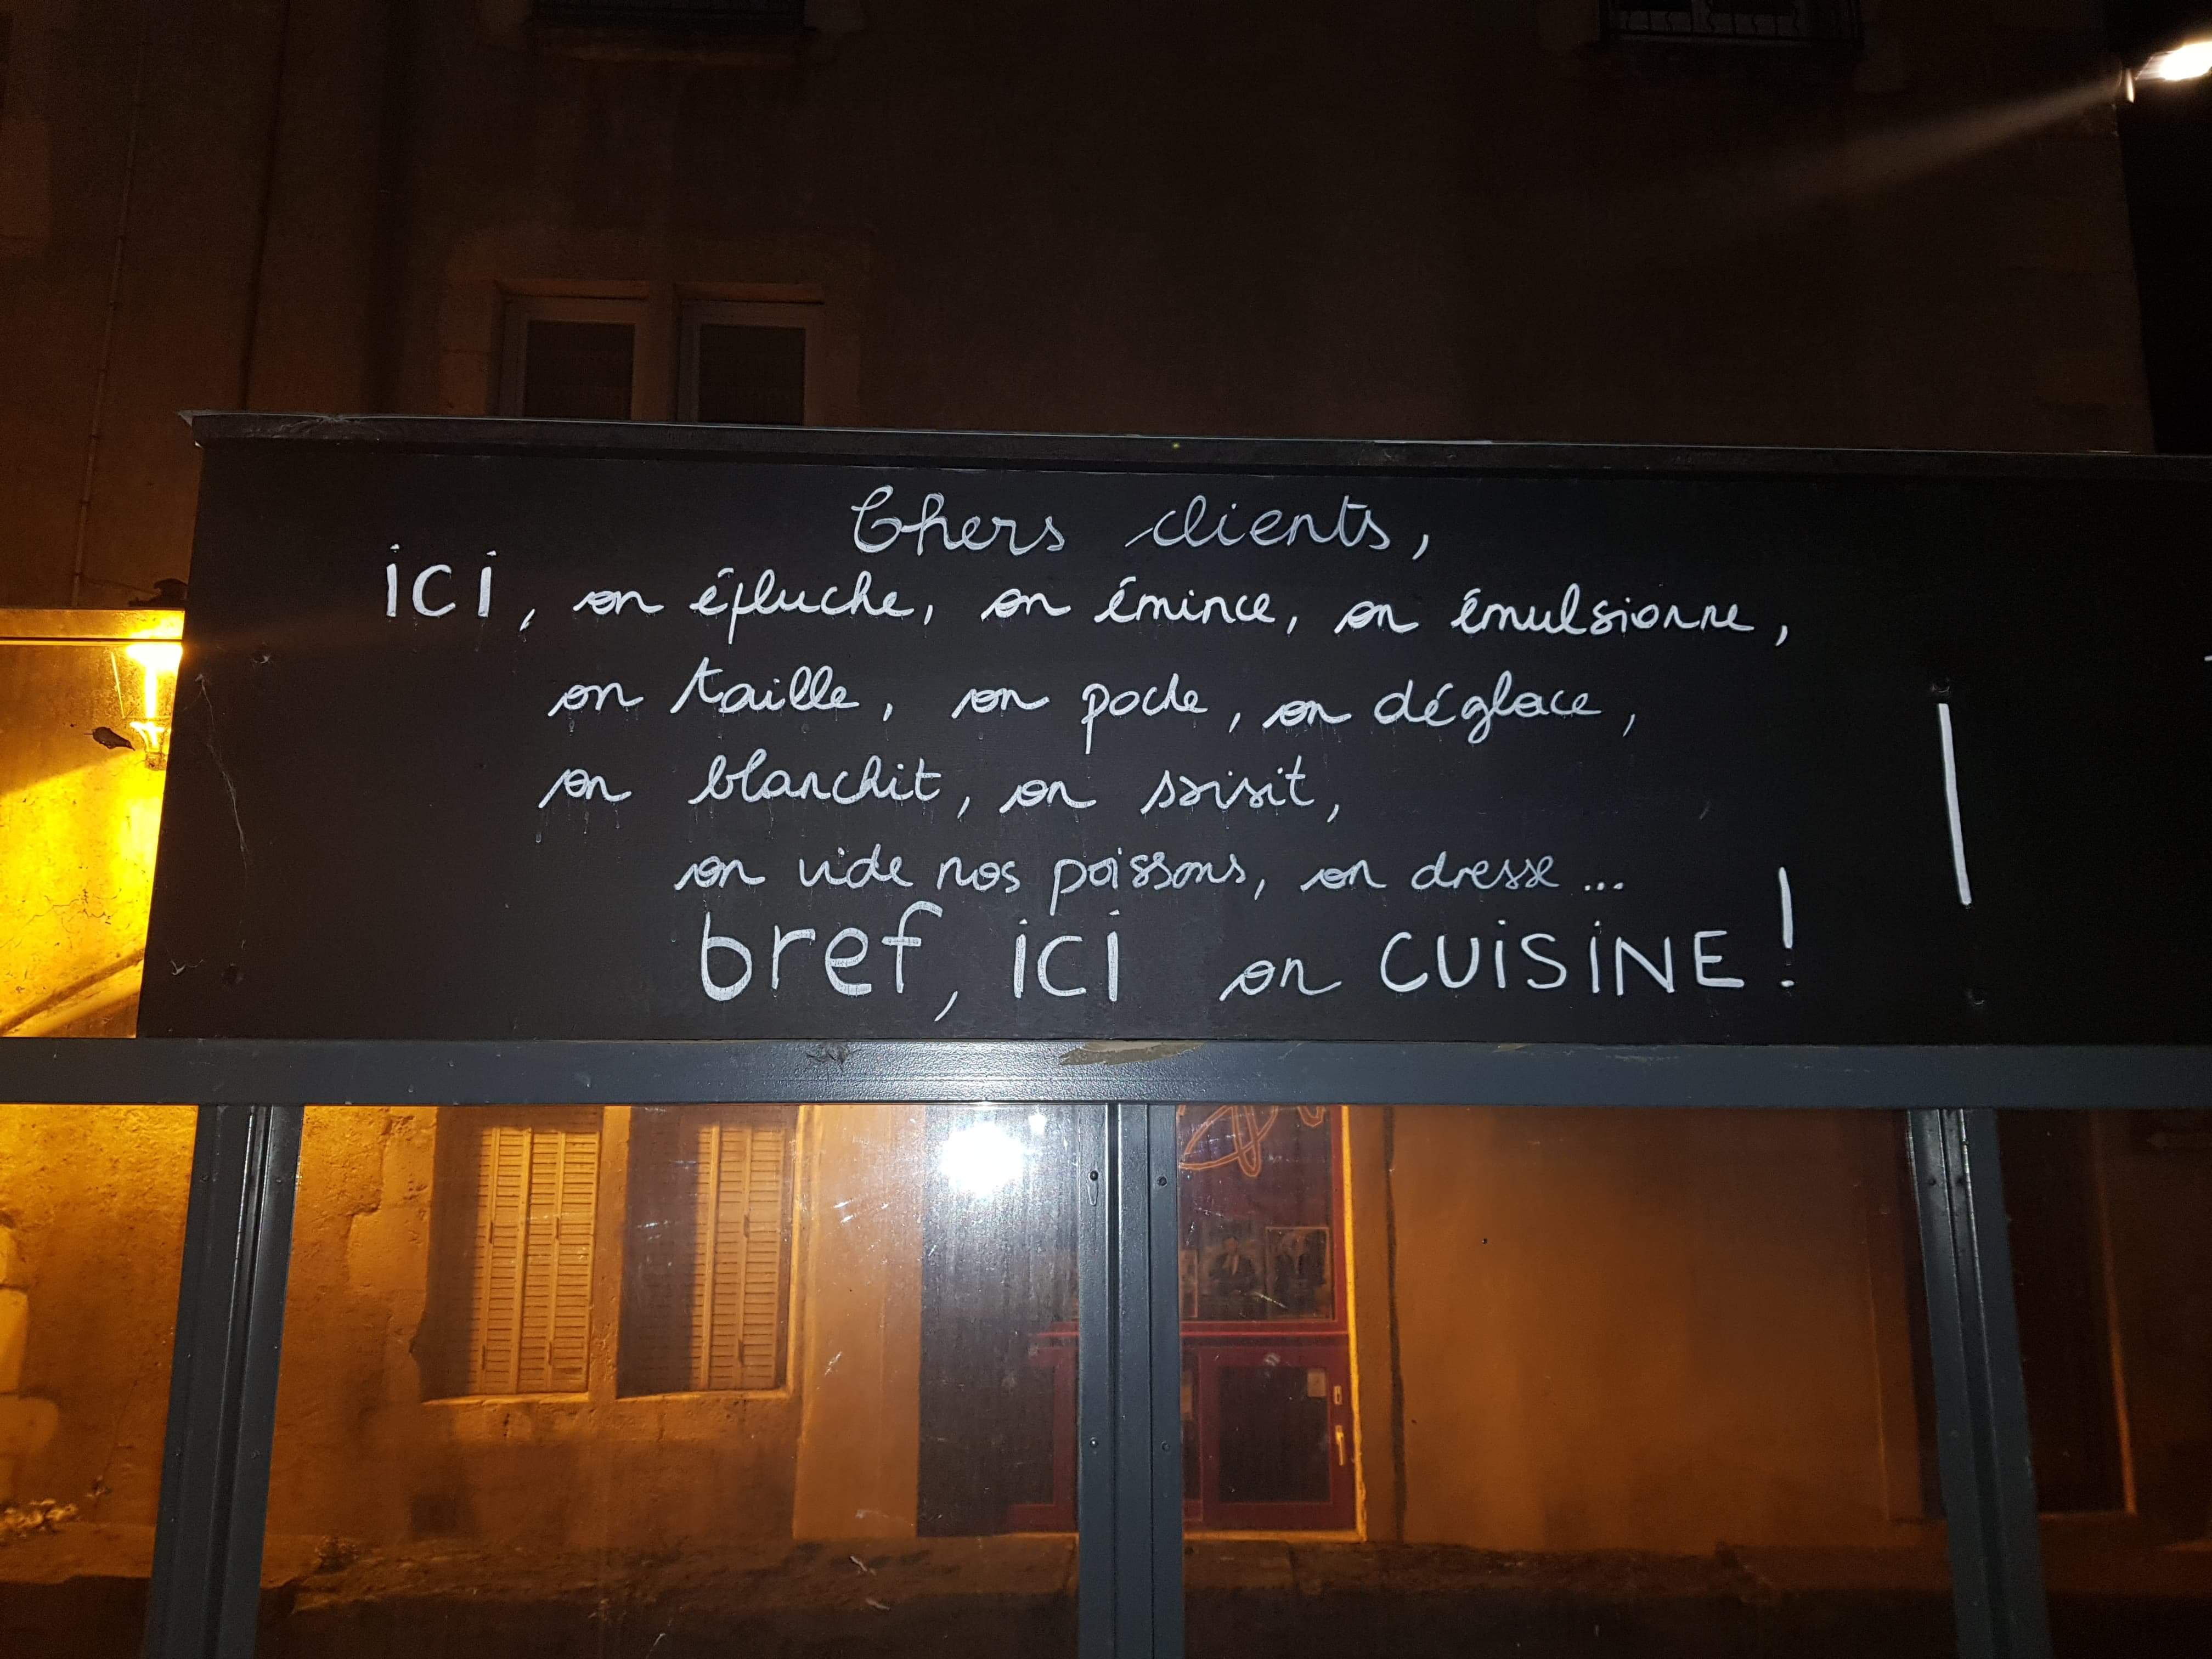 Chers clients,
ici, on épluche, on émince, on émulsionne,
on taille, on poche, on déglace,
on blanchit, on saisit,
on vide nos poissons, on dresse...
bref, ici on CUISINE !